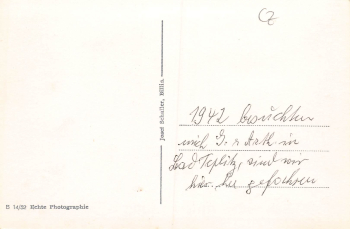 CZ
Josef Schaller, Billin.
1942 besuchten
mich G. u
Bad Teplitz, sind wir
hin gefahren
B 14/52 Echte Photographie